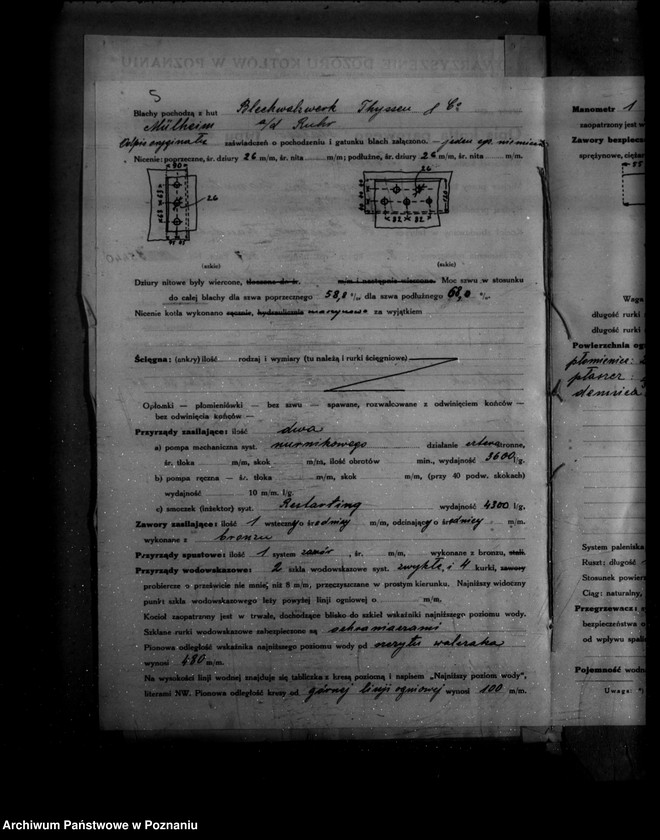 5
Blachy pochodzą z hut Blechwalzwerk Thyssen & Co
Mülheim a/d Ruhr
Odpis oryginału zaświadczeń o pochodzeniu i gatunku blach załączono. — jeden egz. niemiecki
Nicenie: poprzeczne, śr. dziury 26 m/m, śr. nita m/m; podłużne, śr. dziury 26 m/m, śr. nita m/m.
90
26
26
82 82
(szkic) (szkic)
Dziury nitowe były wiercone, tłoczone do śr. m/m i następnie wiercone. Moc szwu w stosunku
do całej blachy dla szwa poprzecznego 58,8 % dla szwa podłużnego 68,0 %.
Nicenie kotła wykonano ręcznie, hydraulicznie maszynowo za wyjątkiem
Ścięgna: (ankry) ilość rodzaj i wymiary (tu należą i rurki ścięgniowe)
Opłomki — płomieniówki — bez szwu — spawane, rozwalcowane z odwinięciem końców —
bez odwinięcia końców —
Przyrządy zasilające: ilość dwa
a) pompa mechaniczna syst. nurnikowego działanie cztero stronne,
śr. tłoka m/m, skok m/m, ilość obrotów min., wydajność 3600 l/g.
b) pompa ręczna — śr. tłoka m/m, skok m/m, (przy 40 podw. skokach)
wydajność 10 m/m. l/g.
c) smoczek (inżektor) syst. Restarting wydajność 4300 l/g.
Zawory zasilające: ilość 1 wsteczny o średnicy m/m, odcinający o średnicy m/m.
wykonane z bronzu
Przyrządy spustowe: ilość 1 system zawór, śr. m/m, wykonane z bronzu, stali.
Przyrządy wodowskazowe: 2 szkła wodowskazowe syst. zwykłe, i 4 kurki, zawory
probiercze o prześwicie nie mniej, niż 8 m/m, przeczyszczane w prostym kierunku. Najniższy widoczny
punkt szkła wodowskazowego leży powyżej linji ogniowej o m/m.
Kocioł zaopatrzony jest w trwałe, dochodzące blisko do szkieł wskaźniki najniższego poziomu wody.
Szklane rurki wodowskazowe zabezpieczone są ochraniaczami
Pionowa odległość wskaźnika najniższego poziomu wody od szczytu walczaka
wynosi 480 m/m.
Na wysokości linji wodnej znajduje się tabliczka z kresą poziomą i napisem „Najniższy poziom wody",
literami NW. Pionowa odległość kresy od górnej linji ogniowej wynosi 100 m/m.
Manometr 1
zaopatrzony jest w
Zawory bezpiecz
sprężynowe, cięża
Waga
długość rurki
długość rurki
Powierzchnia og
płomienice:
płaszcz:
dennica
System paleniska
Ruszt: długość
Stosunek powierz
Ciąg: naturalny,
Przegrzewacz:
bezpieczeństwa o
od wpływu spali
Pojemność wodn
Uwaga:
Archiwum Państwowe w Poznaniu